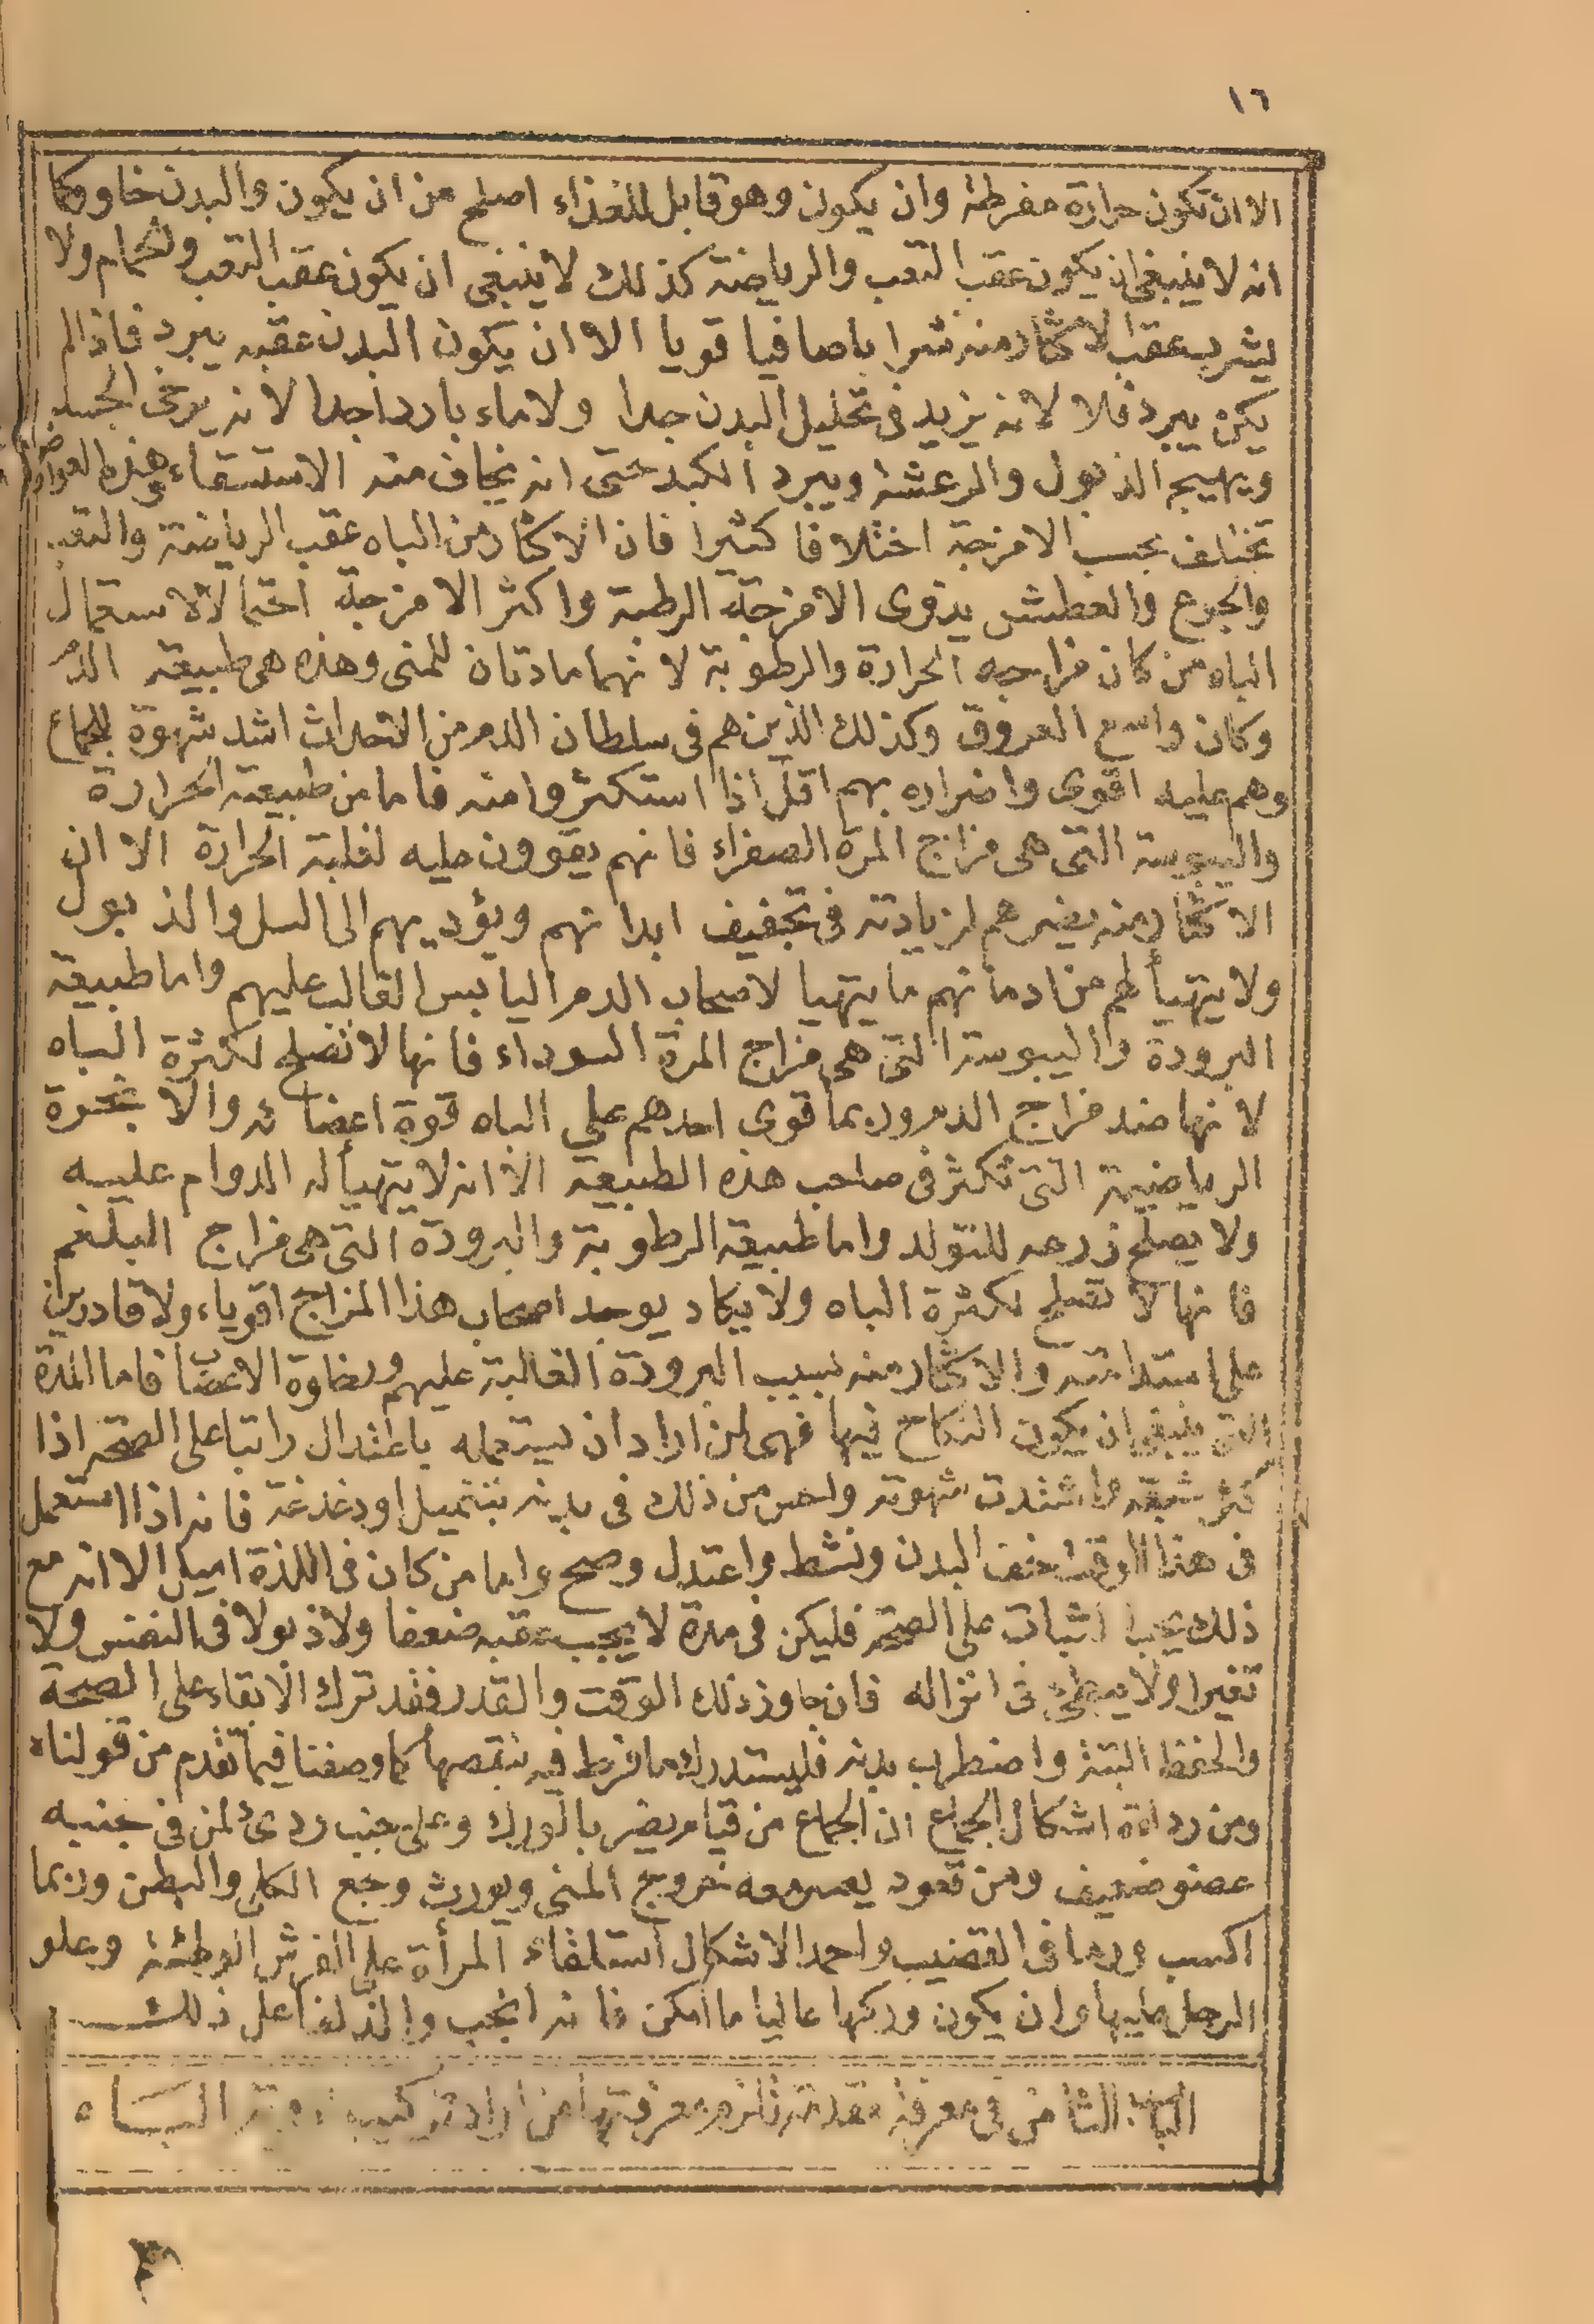 ١٦
الا ان تكون حرارة مفرطة وان يكون وهو قابل للغذاء اصلح من ان يكون والبدن خاو وكما
انه لا ينبغى ان يكون عقب التعب والرياضة كذلك لا ينبغى ان يكون عقب التعب والحمام ولا
يشرب عقب الاكثار منه شرا با صافيا قويا الا ان يكون البدن عقبه يبرد فاذا لم
يكن يبرد فلا لانه يزيد فى تحليل البدن جدا ولا ماء باردا جدا لانه يرخى الجسد
ويهيج الذبول والرعشة ويبرد الكبد حتى انه يخاف منه الاستسقاء وهذه العوارض
تختلف بحسب الامزجة اختلافا كثيرا فان الاكثار من الباه عقب الرياضة والتعب
والجوع والعطش يد قوى الامزجة الرطبة واكثر الامزجة احتمالا لاستعمال
الباه من كان مزاجه الحرارة والرطوبة لانهما مادتان للمنى وهذه هى طبيعة الدم
وكان واسع العروق وكذلك الذين هم فى سلطان الدم من الاحداث اشد شهوة للجماع
وهم عليه اقوى واضراره بهم اقل اذا استكثروا منه فاما من طبيعته الحرارة
واليبوسة التى هى مزاج المرة الصفراء فانهم يقوون عليه لغلبة الحرارة الا ان
الاكثار منه يضرهم لزيادته فى تجفيف ابدانهم ويؤديهم الى السل والذبول
ولا يتهيأ لهم من ادمانهم ما يتهيا لاصحاب الدم اليابس الغالب عليهم واما طبيعة
البرودة واليبوسة التى هى مزاج المرة السوداء فانها لا تصلح لكثرة الباه
لانها ضد مزاج الدم وربما قوى احدهم على الباه قوة اعضائه والابخرة
الرياضية التى تكثر فى صاحب هذه الطبيعة الا انه لا يتهيأ له الدوام عليه
ولا يصلح زرعه للتولد واما طبيعة الرطوبة والبرودة التى هى مزاج البلغم
فانها لا تصلح لكثرة الباه ولا يكاد يوجد اصحاب هذا المزاج اقوياء ولا قادرين
على استدامته والاكثار منه بسبب البرودة الغالبة عليهم ورخاوة الاعصاب فاما المدة
التى ينبغى ان يكون النكاح فيها فهى لمن اراد ان يستعمله باعتدال راتبا على الصحة اذا
كثر شبقه واشتدت شهوته واحس من ذلك فى بدنه بتنميل او دغدغة فانه اذا استعمل
فى هذا الوقت خف البدن ونشط واعتدل وصح واما من كان فى اللذة اميل الا انه مع
ذلك يحب الثبات على الصحة فليكن فى مدة لا يجب عقبه ضعفا ولا ذبولا فى النفس ولا
تغيرا ولا يبطئ فى انزاله فان جاوز ذلك الوقت والقدر فقد ترك الابقاء على الصحة
والحفظ البتة واضطرب بدنه فليستدرك ما فرط فيه بنقصها كما وصفنا فيما تقدم من قولناه
ومن رداءة اشكال الجماع ان الجماع من قيام يضر بالورك وعلى جنب ردئ لمن فى جنبه
عضو ضعيف ومن قعود يعسر معه خروج المنى ويورث وجع الكلى والبطن وربما
اكسب ورما فى القضيب واحمد الاشكال استلقاء المرأة على الفرش الوطئة وعلو
الرجل عليها وان يكون وركها عاليا ما امكن فانه انجب والذ لفاعل ذلك
الباب الثامن فى معرفة مقدمة تلزم معرفتها من اراد تركيب ادوية البـاه